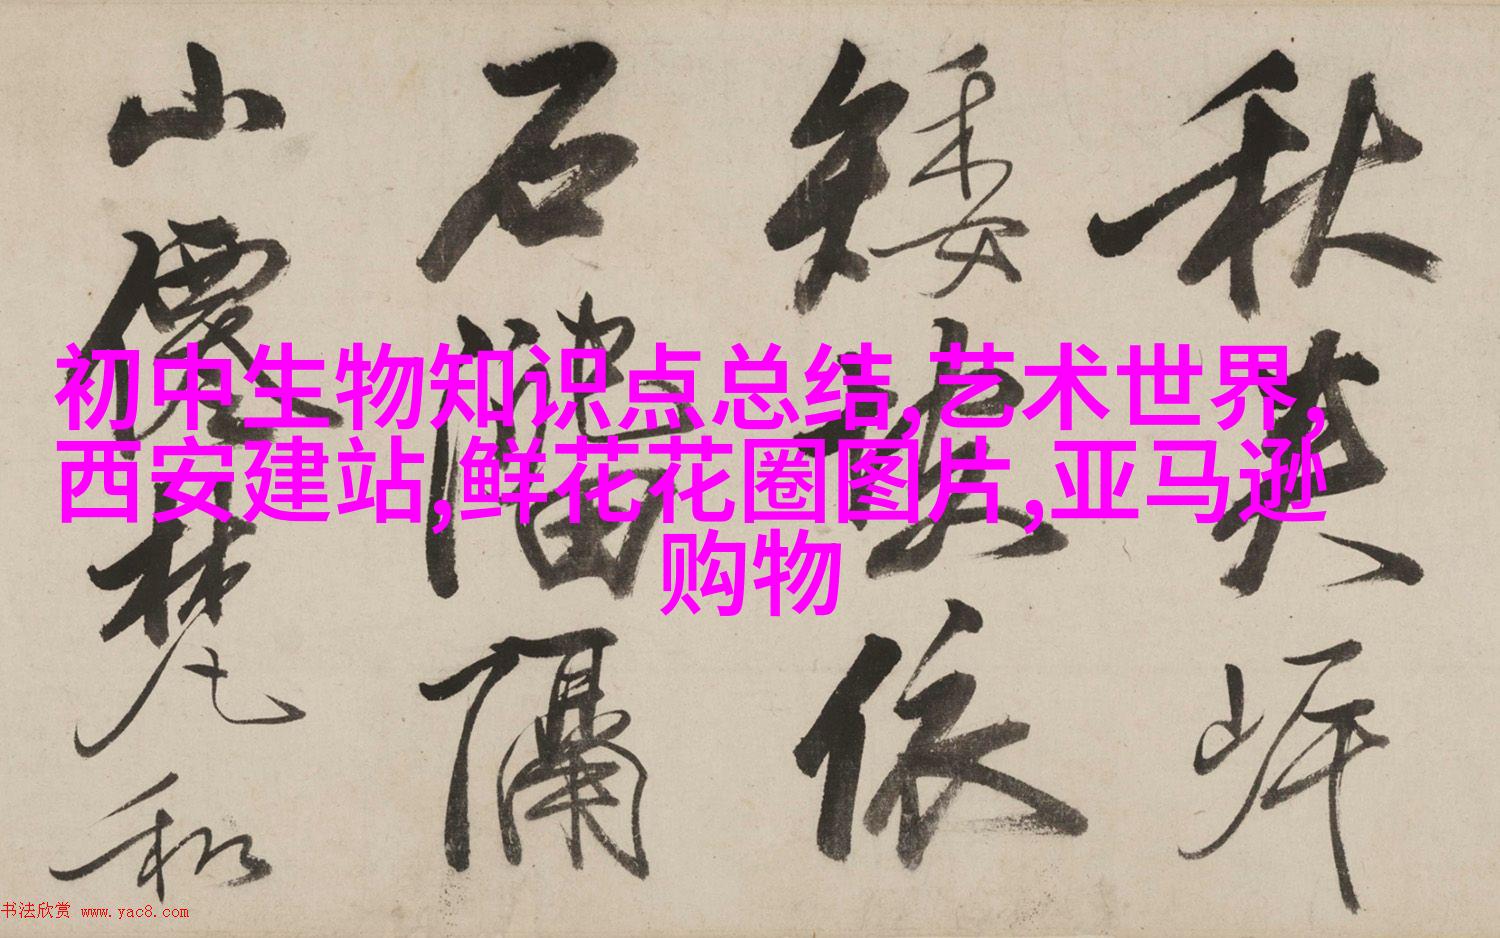 初中生物知识点总结,艺术世界,
西安建站,鲜花花圈图片,亚马逊
购物
秋
矮 依
石 隔
山 梵和
书法欣赏 www.yac8.com